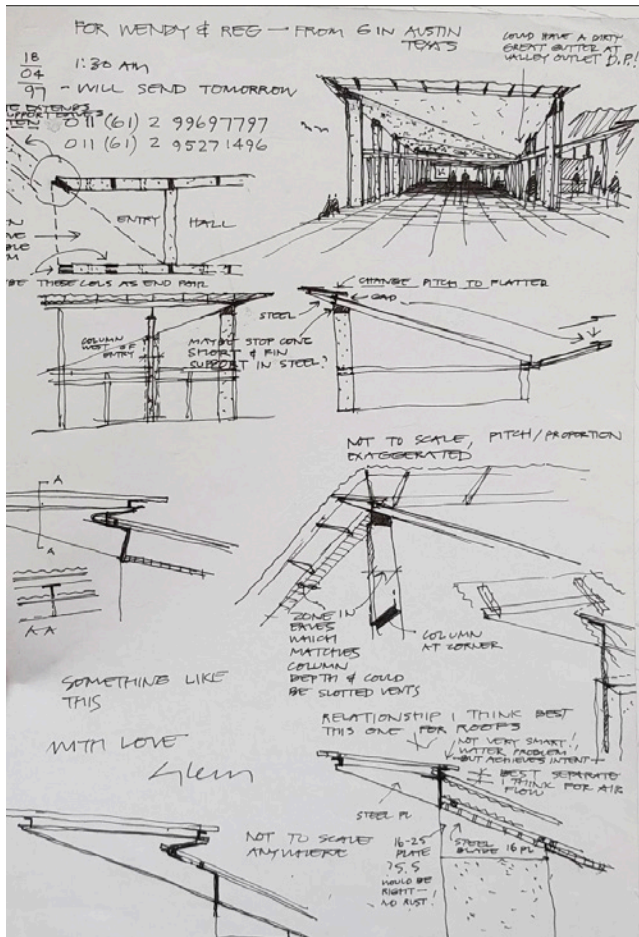 FOR WENDY & REG — FROM G IN AUSTIN
TEXAS
18
04
97
1:30 AM
- WILL SEND TOMORROW
011 (61) 2 99697797
011 (61) 2 95271496
COULD HAVE A DIRTY
GREAT GUTTER AT
VALLEY OUTLET D.P.!
SUPPORT EAVES
ENTRY
HALL
BE THESE COLS AS END PAIR
COLUMN
WEST OF
ENTRY
STEEL
MAYBE STOP CONC
SHORT & FIN
SUPPORT IN STEEL?
CHANGE PITCH TO FLATTER
GAP
NOT TO SCALE, PITCH/PROPORTION
EXAGGERATED
A
A
A A
ZONE IN
EAVES
WHICH
MATCHES
COLUMN
DEPTH & COULD
BE SLOTTED VENTS
COLUMN
AT CORNER
SOMETHING LIKE
THIS
WITH LOVE
Glenn
RELATIONSHIP I THINK BEST
THIS ONE FOR ROOFS
NOT VERY SMART!
WATER PROBLEM!
BUT ACHIEVES INTENT
BEST SEPARATE
I THINK FOR AIR
FLOW
STEEL PL
NOT TO SCALE
ANYWHERE
16-25
PLATE
?S.S
WOULD BE
RIGHT —
NO RUST!
STEEL
BLADE 16 PL